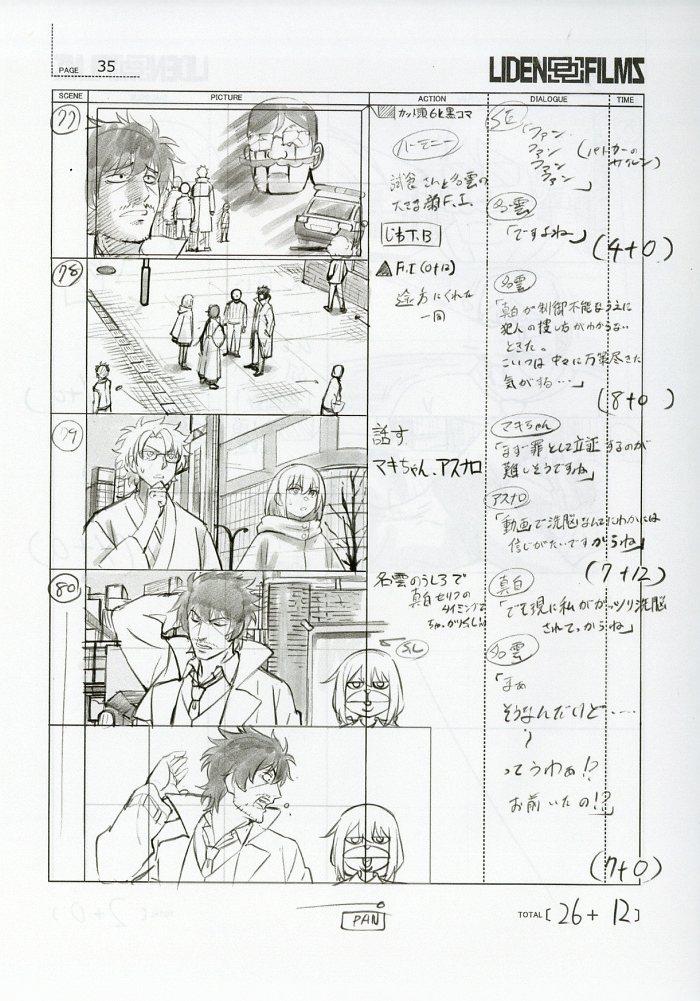 PAGE 35
LIDENFILMS
SCENE PICTURE ACTION DIALOGUE TIME
77
カット頭6k黒コマ
ハーモニー
F.I.
じわT.B
SE
「ファン
ファン
ファン
ファン」
(パトカーのサイレン)
名雲
「ですよね」
(4+0)
78
F.I(0+12)
途方にくれた
一同
名雲
「真白が制御不能なうえに
犯人の捜し方がわからない
ときた。
こいつは中々に万策尽きた
気がする…」
(8+0)
79
話す
マキちゃん、アスナロ
マキちゃん
「まず罪として立証するのが
難しそうですね」
アスナロ
「動画で洗脳なんてにわかには
信じがたいですからね」
(7+12)
80
名雲のうしろで
真白セリフの
タイミングで
真白
「でも現に私がガッツリ洗脳
されてっからね」
名雲
「まぁ
そうなんだけど……
ってうわぁ!?
お前いたの!?」
(7+0)
PAN
TOTAL [ 26 + 12 ]